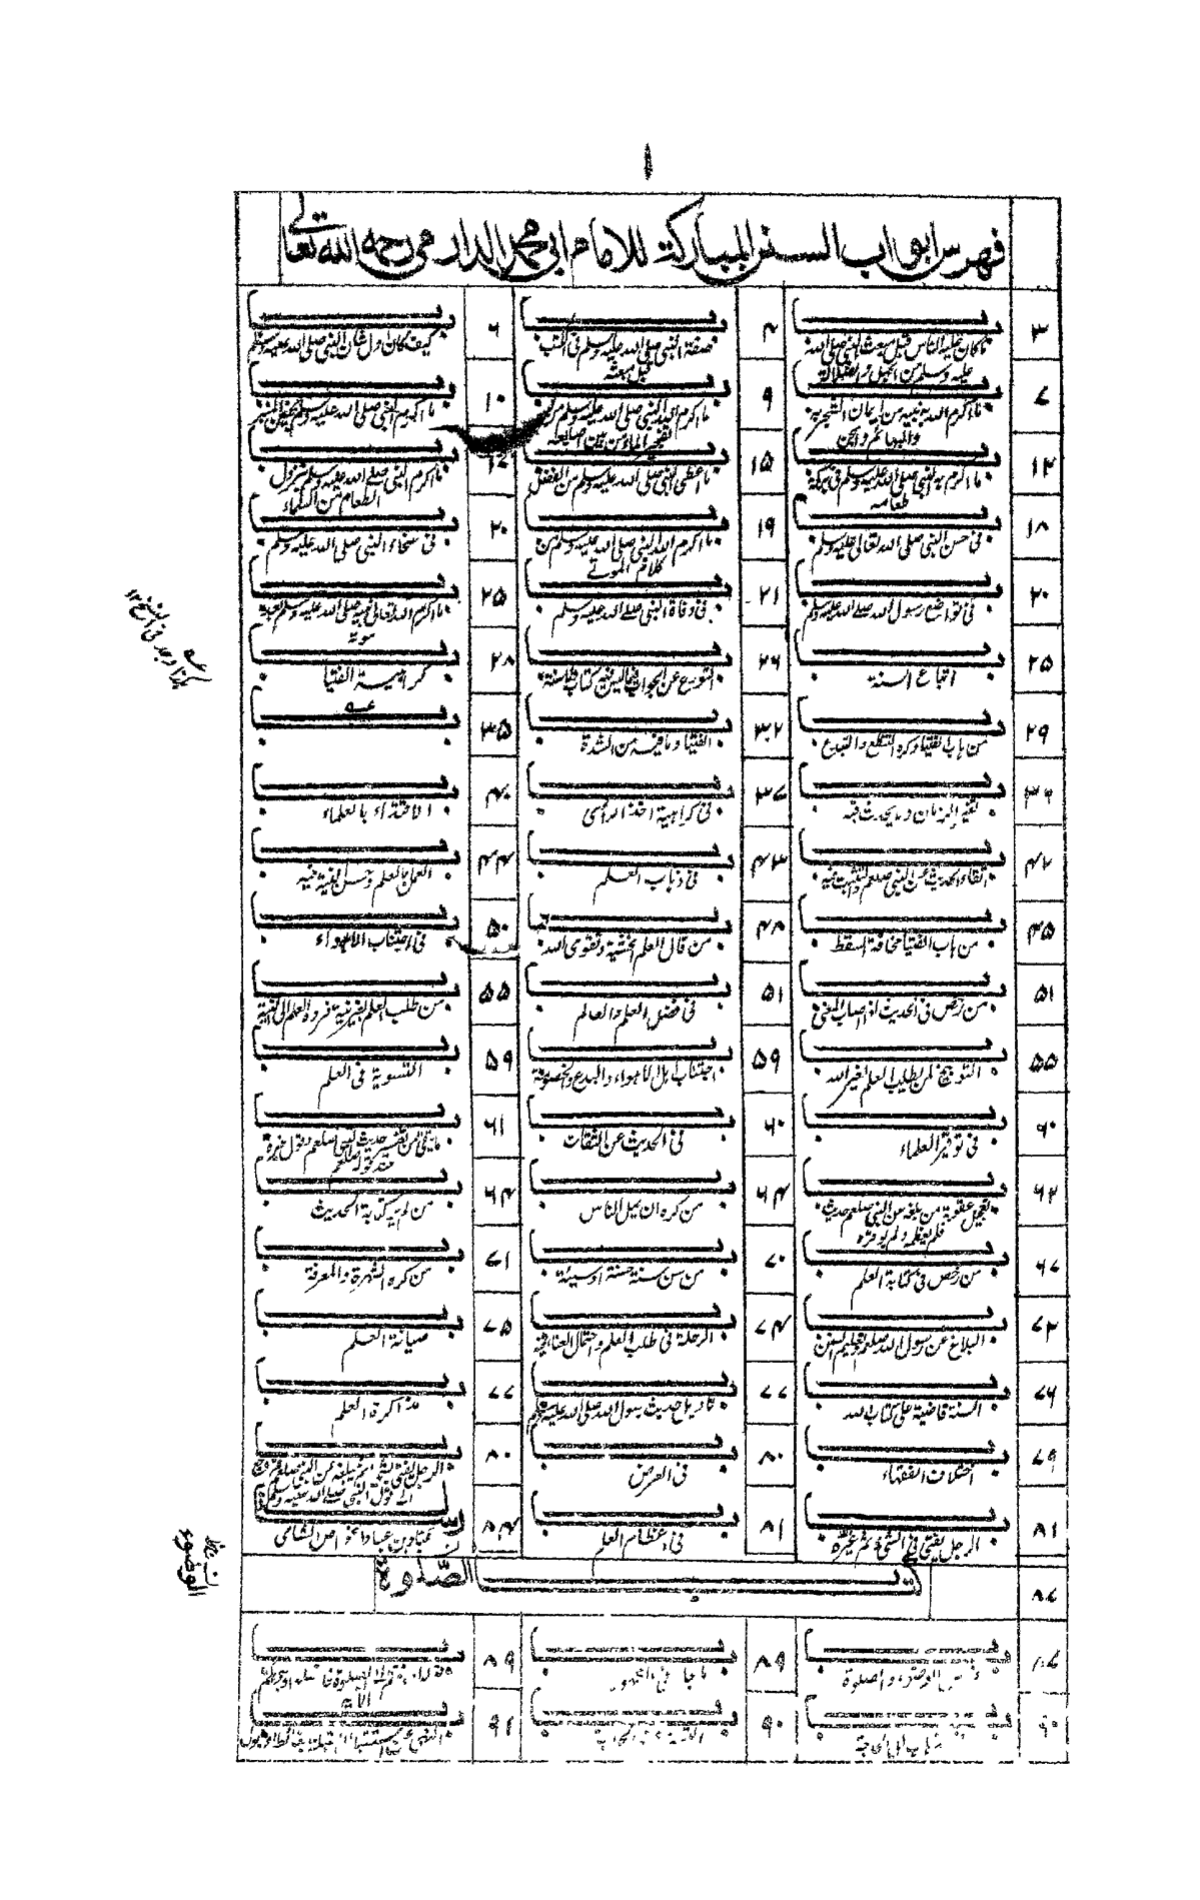 ١
فهرس ابواب السنن المباركة للامام ابي محمد الدارمي رحمه الله تعالى
٣ باب ما كان عليه الناس قبل مبعث النبي صلى الله عليه وسلم من الجهل والضلالة
٤ باب صفة النبي صلى الله عليه وسلم في الكتب قبل مبعثه
٦ باب كيف كان اول شان النبي صلى الله عليه وسلم
٧ باب ما اكرم الله به نبيه من ايمان الشجر به والبهائم والجن
٩ باب ما اكرم الله النبي صلى الله عليه وسلم من تفجير الماء من بين اصابعه
١٠ باب ما اكرم النبي صلى الله عليه وسلم بحنين المنبر
١٢ باب ما اكرم به النبي صلى الله عليه وسلم في بركة طعامه
١٥ باب ما اعطي النبي صلى الله عليه وسلم من الفضل
باب ما اكرم النبي صلى الله عليه وسلم بنزول الطعام من السماء
١٨ باب في حسن النبي صلى الله تعالى عليه وسلم
١٩ باب ما اكرم الله النبي صلى الله عليه وسلم من كلام الموتى
٢٠ باب في سخاء النبي صلى الله عليه وسلم
٢٠ باب في تواضع رسول الله صلى الله عليه وسلم
٢١ باب في وفاة النبي صلى الله عليه وسلم
٢٥ باب ما اكرم الله تعالى نبيه صلى الله عليه وسلم بعد موته
٢٥ باب اتباع السنة
٢٦ باب التورع عن الجواب فيما ليس فيه كتاب ولا سنة
٢٨ باب كراهية الفتيا
٢٩ باب من هاب الفتيا وكره التنطع والتبدع
٣٢ باب الفتيا وما فيه من الشدة
٣٥ باب عه
٣٦ باب تغير الزمان وما يحدث فيه
٣٧ باب في كراهية اخذ الراى
٤٠ باب الاقتداء بالعلماء
٤٢ باب اتقاء الحديث عن النبي صلعم والتثبت فيه
٤٣ باب في ذهاب العلم
٤٤ باب العمل بالعلم وحسن النية فيه
٤٥ باب من هاب الفتيا مخافة السقط
٤٨ باب من قال العلم الخشية وتقوى الله
٥٠ باب في اجتناب الاهواء
٥١ باب من رخص في الحديث اذا اصاب المعنى
٥١ باب في فضل العلم والعالم
٥٥ باب من طلب العلم بغير نية فرده العلم الى النية
٥٥ باب التوبيخ لمن يطلب العلم لغير الله
٥٩ باب اجتناب اهل الاهواء والبدع والخصومة
٥٩ باب التسوية في العلم
٦٠ باب في توقير العلماء
٦٠ باب في الحديث عن الثقات
٦١ باب ما يتقى من تفسير حديث النبي صلعم وقول غيره عند قوله صلعم
٦٢ باب تعجيل عقوبة من بلغه عن النبي صلعم حديث فلم يعظمه ولم يوقره
٦٤ باب من كره ان يمل الناس
٦٤ باب من لم ير كتابة الحديث
٦٧ باب من رخص في كتابة العلم
٧٠ باب من سن سنة حسنة او سيئة
٧١ باب من كره الشهرة والمعرفة
٧٢ باب البلاغ عن رسول الله صلعم وتعليم السنن
٧٤ باب الرحلة في طلب العلم واحتمال العناء فيه
٧٥ باب صيانة العلم
٧٦ باب السنة قاضية على كتاب الله
٧٧ باب تاويل حديث رسول الله صلى الله عليه وسلم
٧٧ باب مذاكرة العلم
٧٩ باب اختلاف الفقهاء
٨٠ باب في العرض
٨٠ باب الرجل يفتي بشيء ثم يبلغه عن النبي صلعم فيرجع الى قول النبي صلى الله عليه وسلم
٨١ باب الرجل يفتي في الشيء ثم غيره
٨١ باب في اعظام العلم
٨٤ رسالة عباد بن عباد الخواص الشامي
٨٧ كتاب الصلوة
٨٧ باب فرض الوضوء والصلوة
٨٩ باب ما جاء في الطهور
٨٩ باب
٩٠ باب الذهاب الى الحاجة
٩٠ باب
٩١ باب
عه هكذا وجد في النسخ ١٢
الوضوء